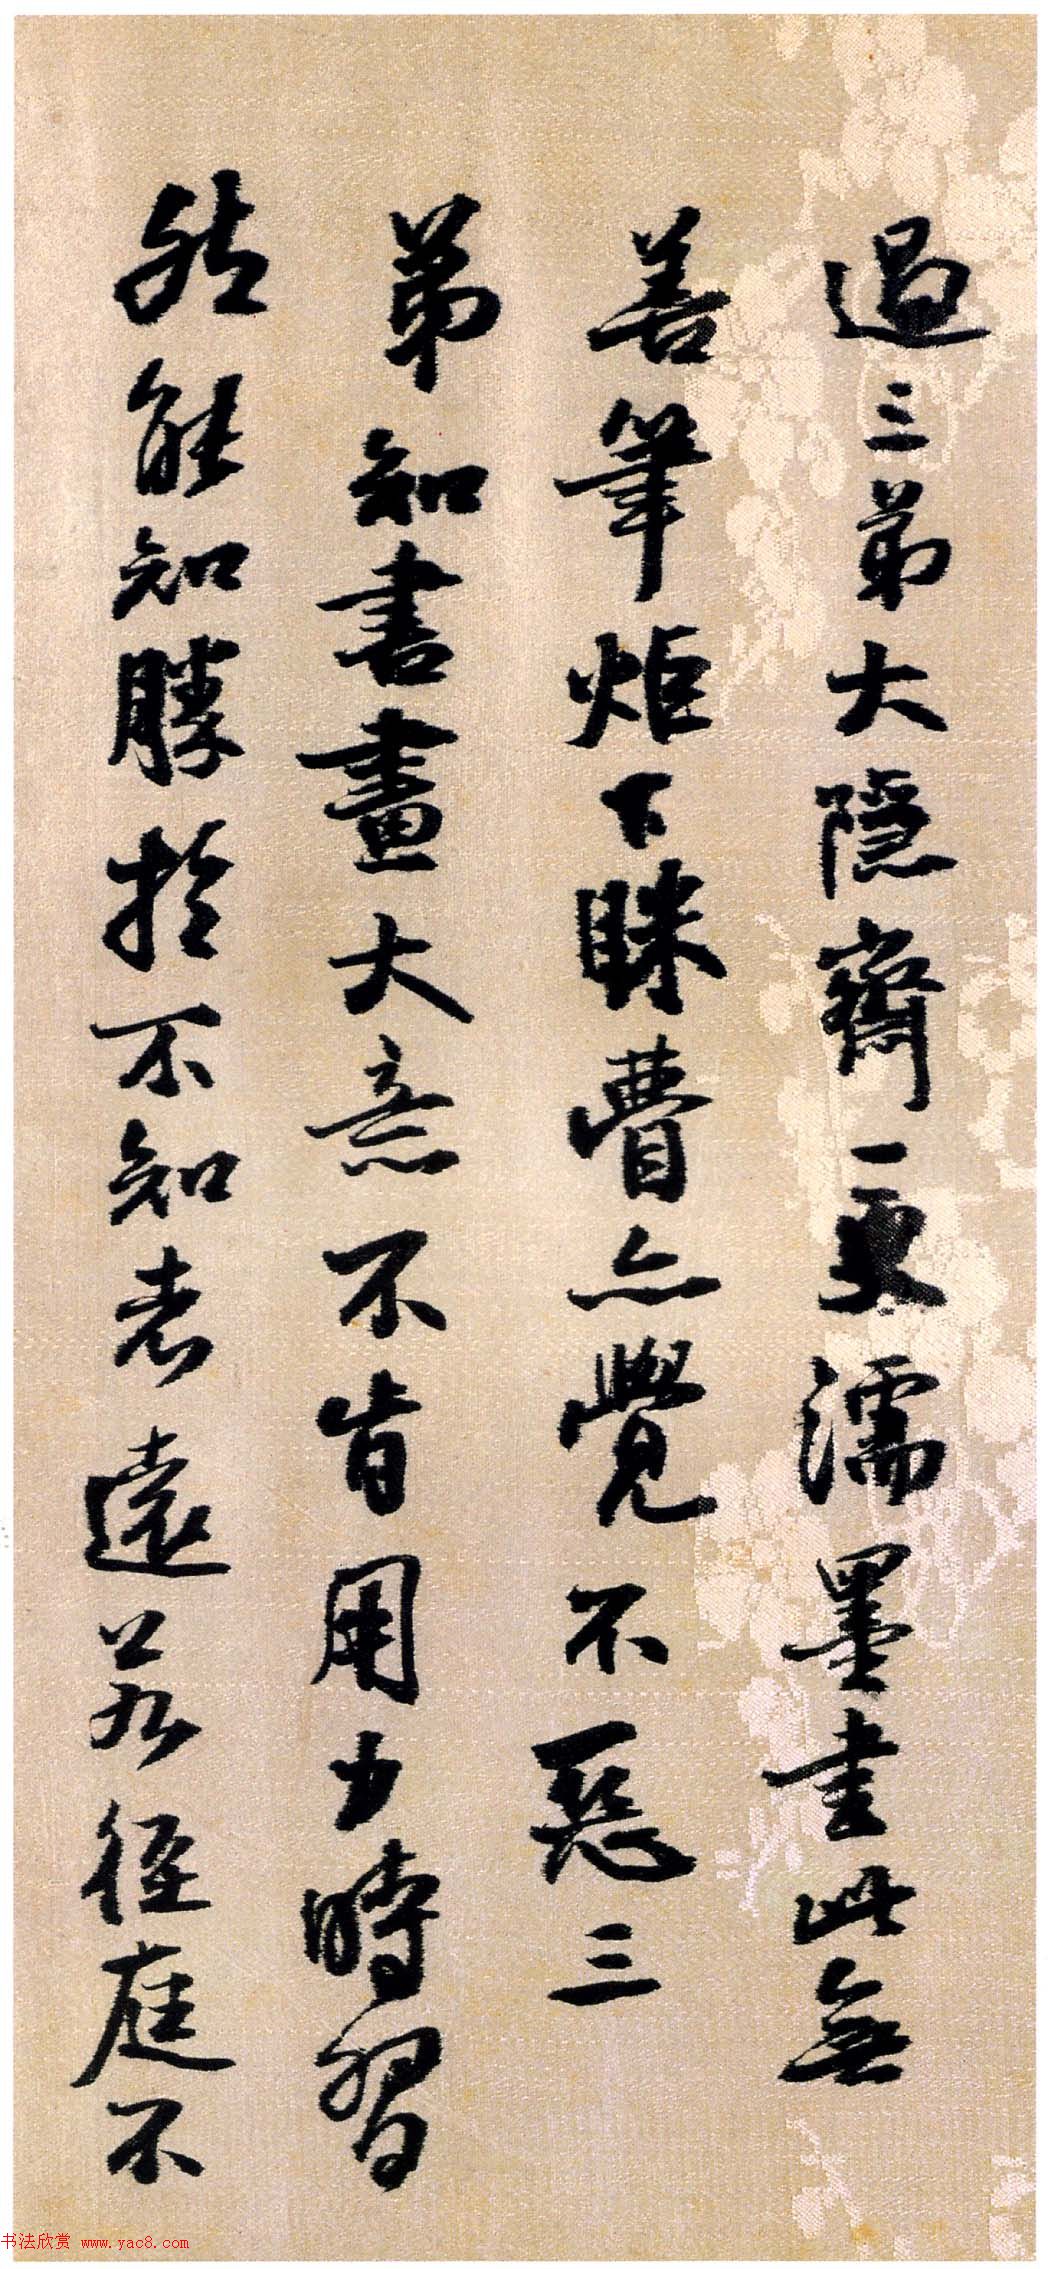 過三弟大隱齋一更濡墨書此無
善筆炬下眯瞢亦覺不惡三
弟知書畫大意不肯用力時習
然能知勝於不知者遠若徑庭不
书法欣赏 www.yac8.com